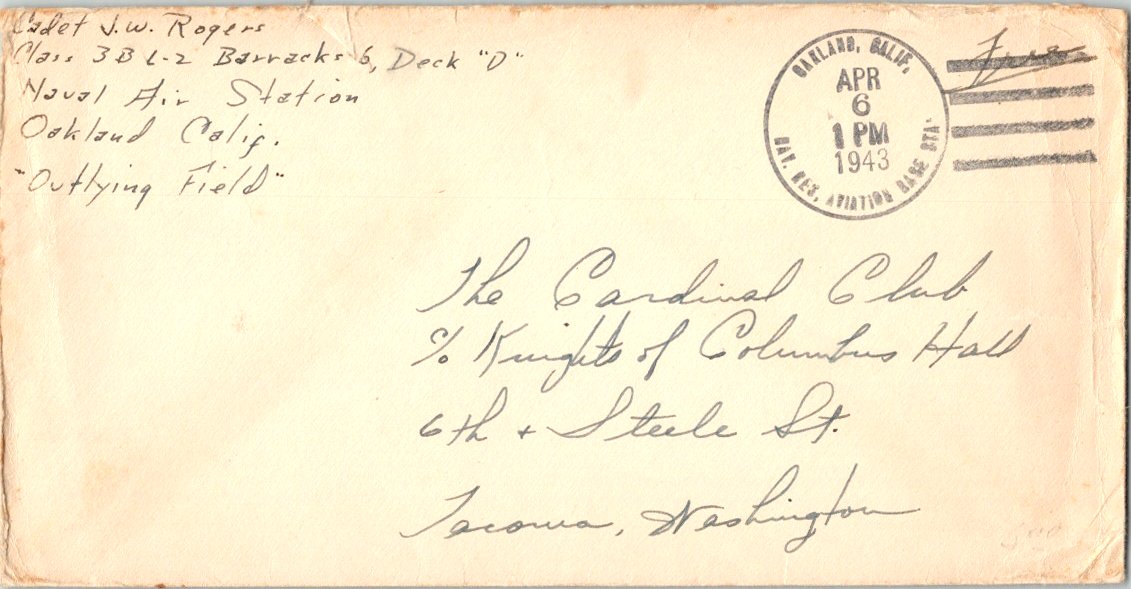 Cadet J.W. Rogers
Class 3B L-2 Barracks 6, Deck "D"
Naval Air Station
Oakland Calif.
"Outlying Field"
OAKLAND, CALIF.
APR
6
1 PM
1943
NAV. RES. AVIATION BASE STA.
Free
The Cardinal Club
c/o Knights of Columbus Hall
6th + Steele St.
Tacoma, Washington